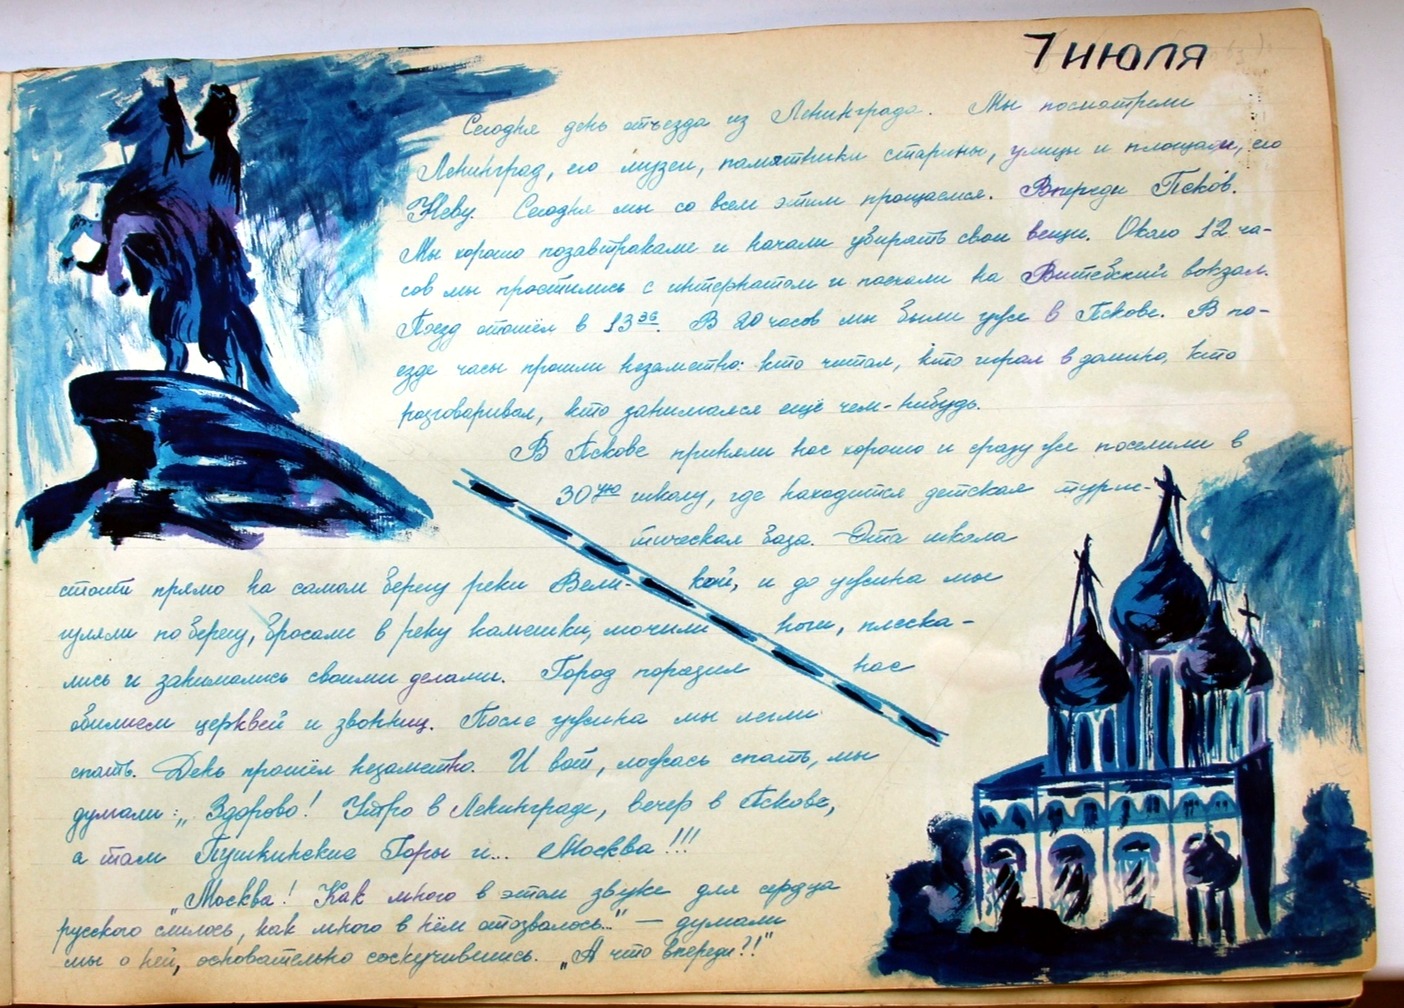 7 ИЮЛЯ
Сегодня день отъезда из Ленинграда. Мы посмотрели
Ленинград, его музеи, памятники старины, улицы и площади, его
Неву. Сегодня мы со всем этим прощаемся. Впереди Псков.
Мы хорошо позавтракали и начали убирать свои вещи. Около 12 ча-
сов мы простились с интернатом и поехали на Витебский вокзал.
Поезд отошёл в 13 36. В 20 часов мы были уже в Пскове. В по-
езде часы прошли незаметно: кто читал, кто играл в домино, кто
разговаривал, кто занимался ещё чем-нибудь.
В Пскове приняли нас хорошо и сразу же поселили в
30ую школу, где находится детская турис-
тическая база. Эта школа
стоит прямо на самом берегу реки Вели- кой, и до ужина мы
гуляли по берегу, бросали в реку камешки, мочили ноги, плеска-
лись и занимались своими делами. Город поразил нас
обилием церквей и звонниц. После ужина мы легли
спать. День прошёл незаметно. И вот, ложась спать, мы
думали: „Здорово! Утро в Ленинграде, вечер в Пскове,
а там Пушкинские Горы и... Москва!!!
„Москва! Как много в этом звуке для сердца
русского слилось, как много в нём отозвалось..." — думали
мы о ней, основательно соскучившись. „А что впереди?!"